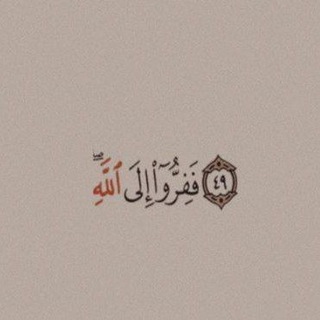 ٤٩ فَفِرُّوٓا۟ إِلَى ٱللَّهِ ۖ